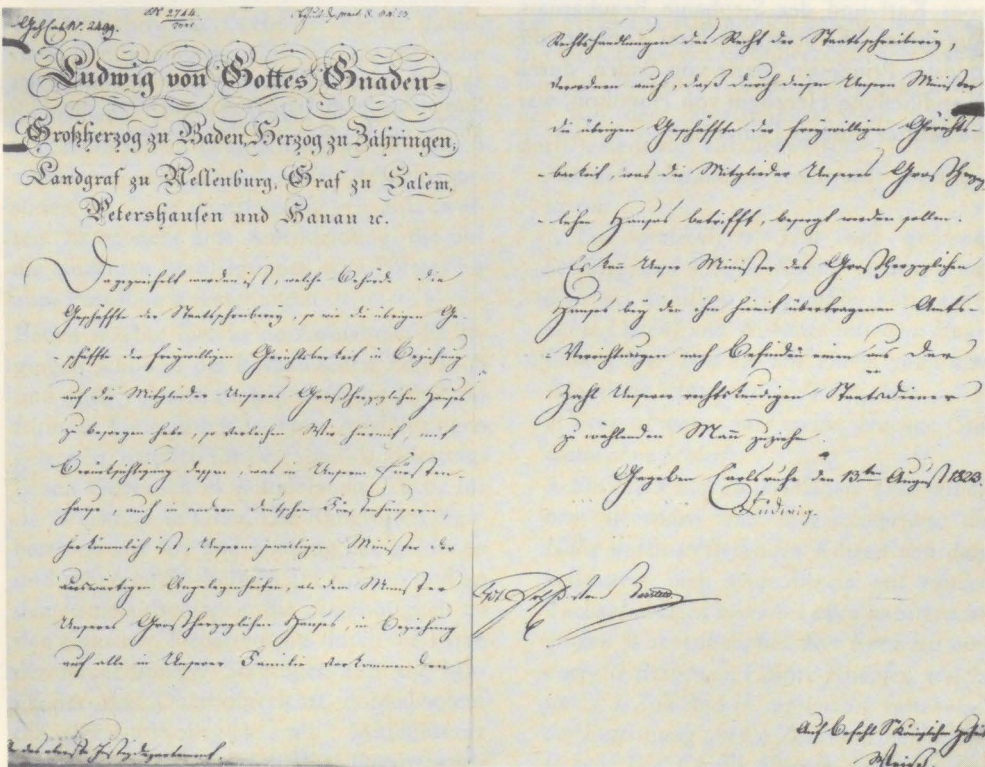 Geh. Cab. N. 2499.
N. 2744.
Ludwig von Gottes Gnaden-
Großherzog zu Baden, Herzog zu Zähringen,
Landgraf zu Nellenburg, Graf zu Salem,
Petershausen und Hanau ꝛc.
Da gezweifelt worden ist, welche Behörde die
Geschäffte der Staatsschreiberey, so wie die übrigen Ge-
-schäffte der freywilligen Gerichtsbarkeit in Beziehung
auf die Mitglieder Unseres Großherzoglichen Hauses
zu besorgen habe, so verleihen Wir hiemit, mit
Berücksichtigung dessen, was in Unserm Fürsten-
hause, auch in andern deutschen Fürstenhäusern,
herkömmlich ist, Unserm jeweiligen Minister der
auswärtigen Angelegenheiten, als dem Minister
Unseres Großherzoglichen Hauses, in Beziehung
auf alle in Unserer Familie vorkommenden
das oberste Justizdepartement.
Rechtshandlungen das Recht der Staatsschreiberey,
verordnen auch, daß durch diesen Unsern Minister
die übrigen Geschäffte der freywilligen Gerichts-
-barkeit, was die Mitglieder Unseres Großherzog
-lichen Hauses betrifft, besorgt werden sollen.
Es kann Unser Minister des Großherzoglichen
Hauses bey den ihm hiemit übertragenen Amts-
-Verrichtungen nach Befinden einen aus der
Zahl Unserer rechtskundigen Staatsdiener
zu wählenden Mann zuziehen.
Gegeben Carlsruhe den 13ten August 1823.
Ludwig.
Auf Befehl S. Königlichen Hoheit